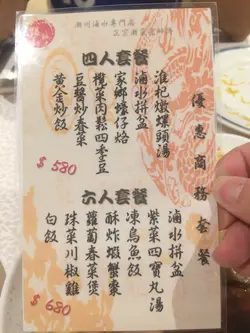 潮州滷水專門店
正宗潮菜業師傅
優惠商務套餐
四人套餐
淮杞燉螺頭湯
滷水拼盆
家鄉蠔仔烙
欖菜肉鬆四季豆
豆醬炒春菜
黃金炒飯
$580
六人套餐
滷水拼盆
紫菜四寶丸湯
凍烏魚飯
酥炸蝦蟹棗
蘿蔔春菜煲
珠菜川椒雞
白飯
$680